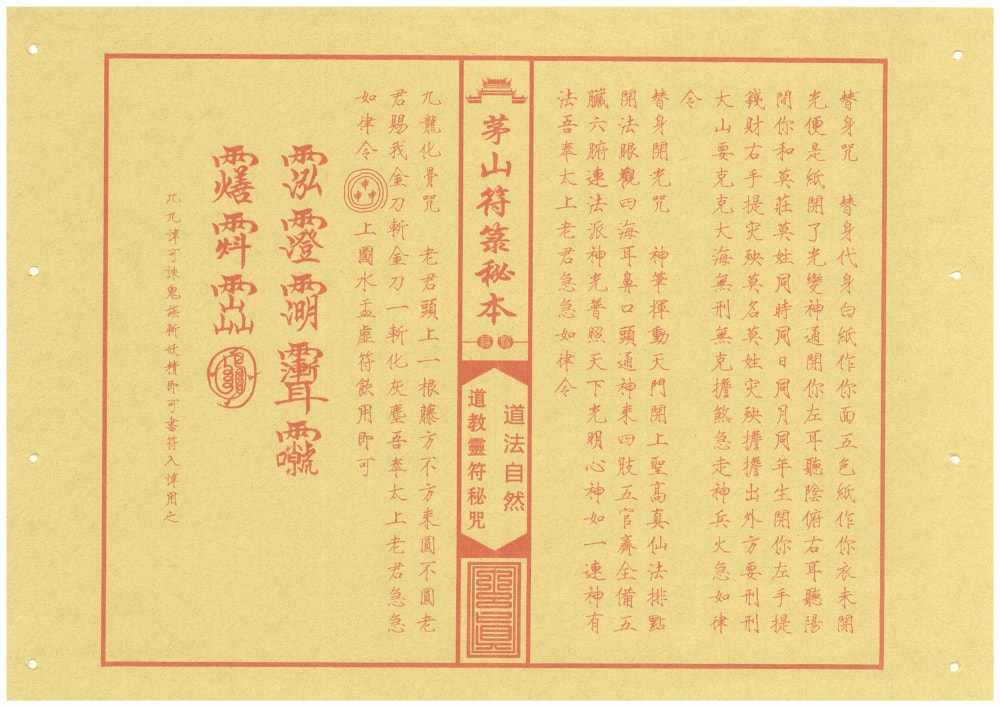 替身咒　替身代身白紙作你面五色紙作你衣未開
光便是紙開了光變神通開你左耳聽陰俯右耳聽陽
間你和莫莊莫姓同時同日同月同年生開你左手提
錢財右手提灾殃莫名莫姓灾殃擔擔出外方要刑刑
大山要克克大海無刑無克擔煞急走神兵火急如律
令
替身開光咒　神筆揮動天門開上聖高真仙法排點
開法眼觀四海耳鼻口頭通神来四肢五官齋全備五
臟六腑連法派神光普照天下光明心神如一連神有
法吾奉太上老君急急如律令
茅山符箓秘本
道法自然
道教靈符秘咒
九龍化骨咒　老君頭上一根藤方不方来圓不圓老
君賜我金刀斬金刀一斬化灰塵吾奉太上老君急急
如律令
上圖水盂虛符飲用即可
此九諱可諫鬼滅斬妖精即可書符入諱用之